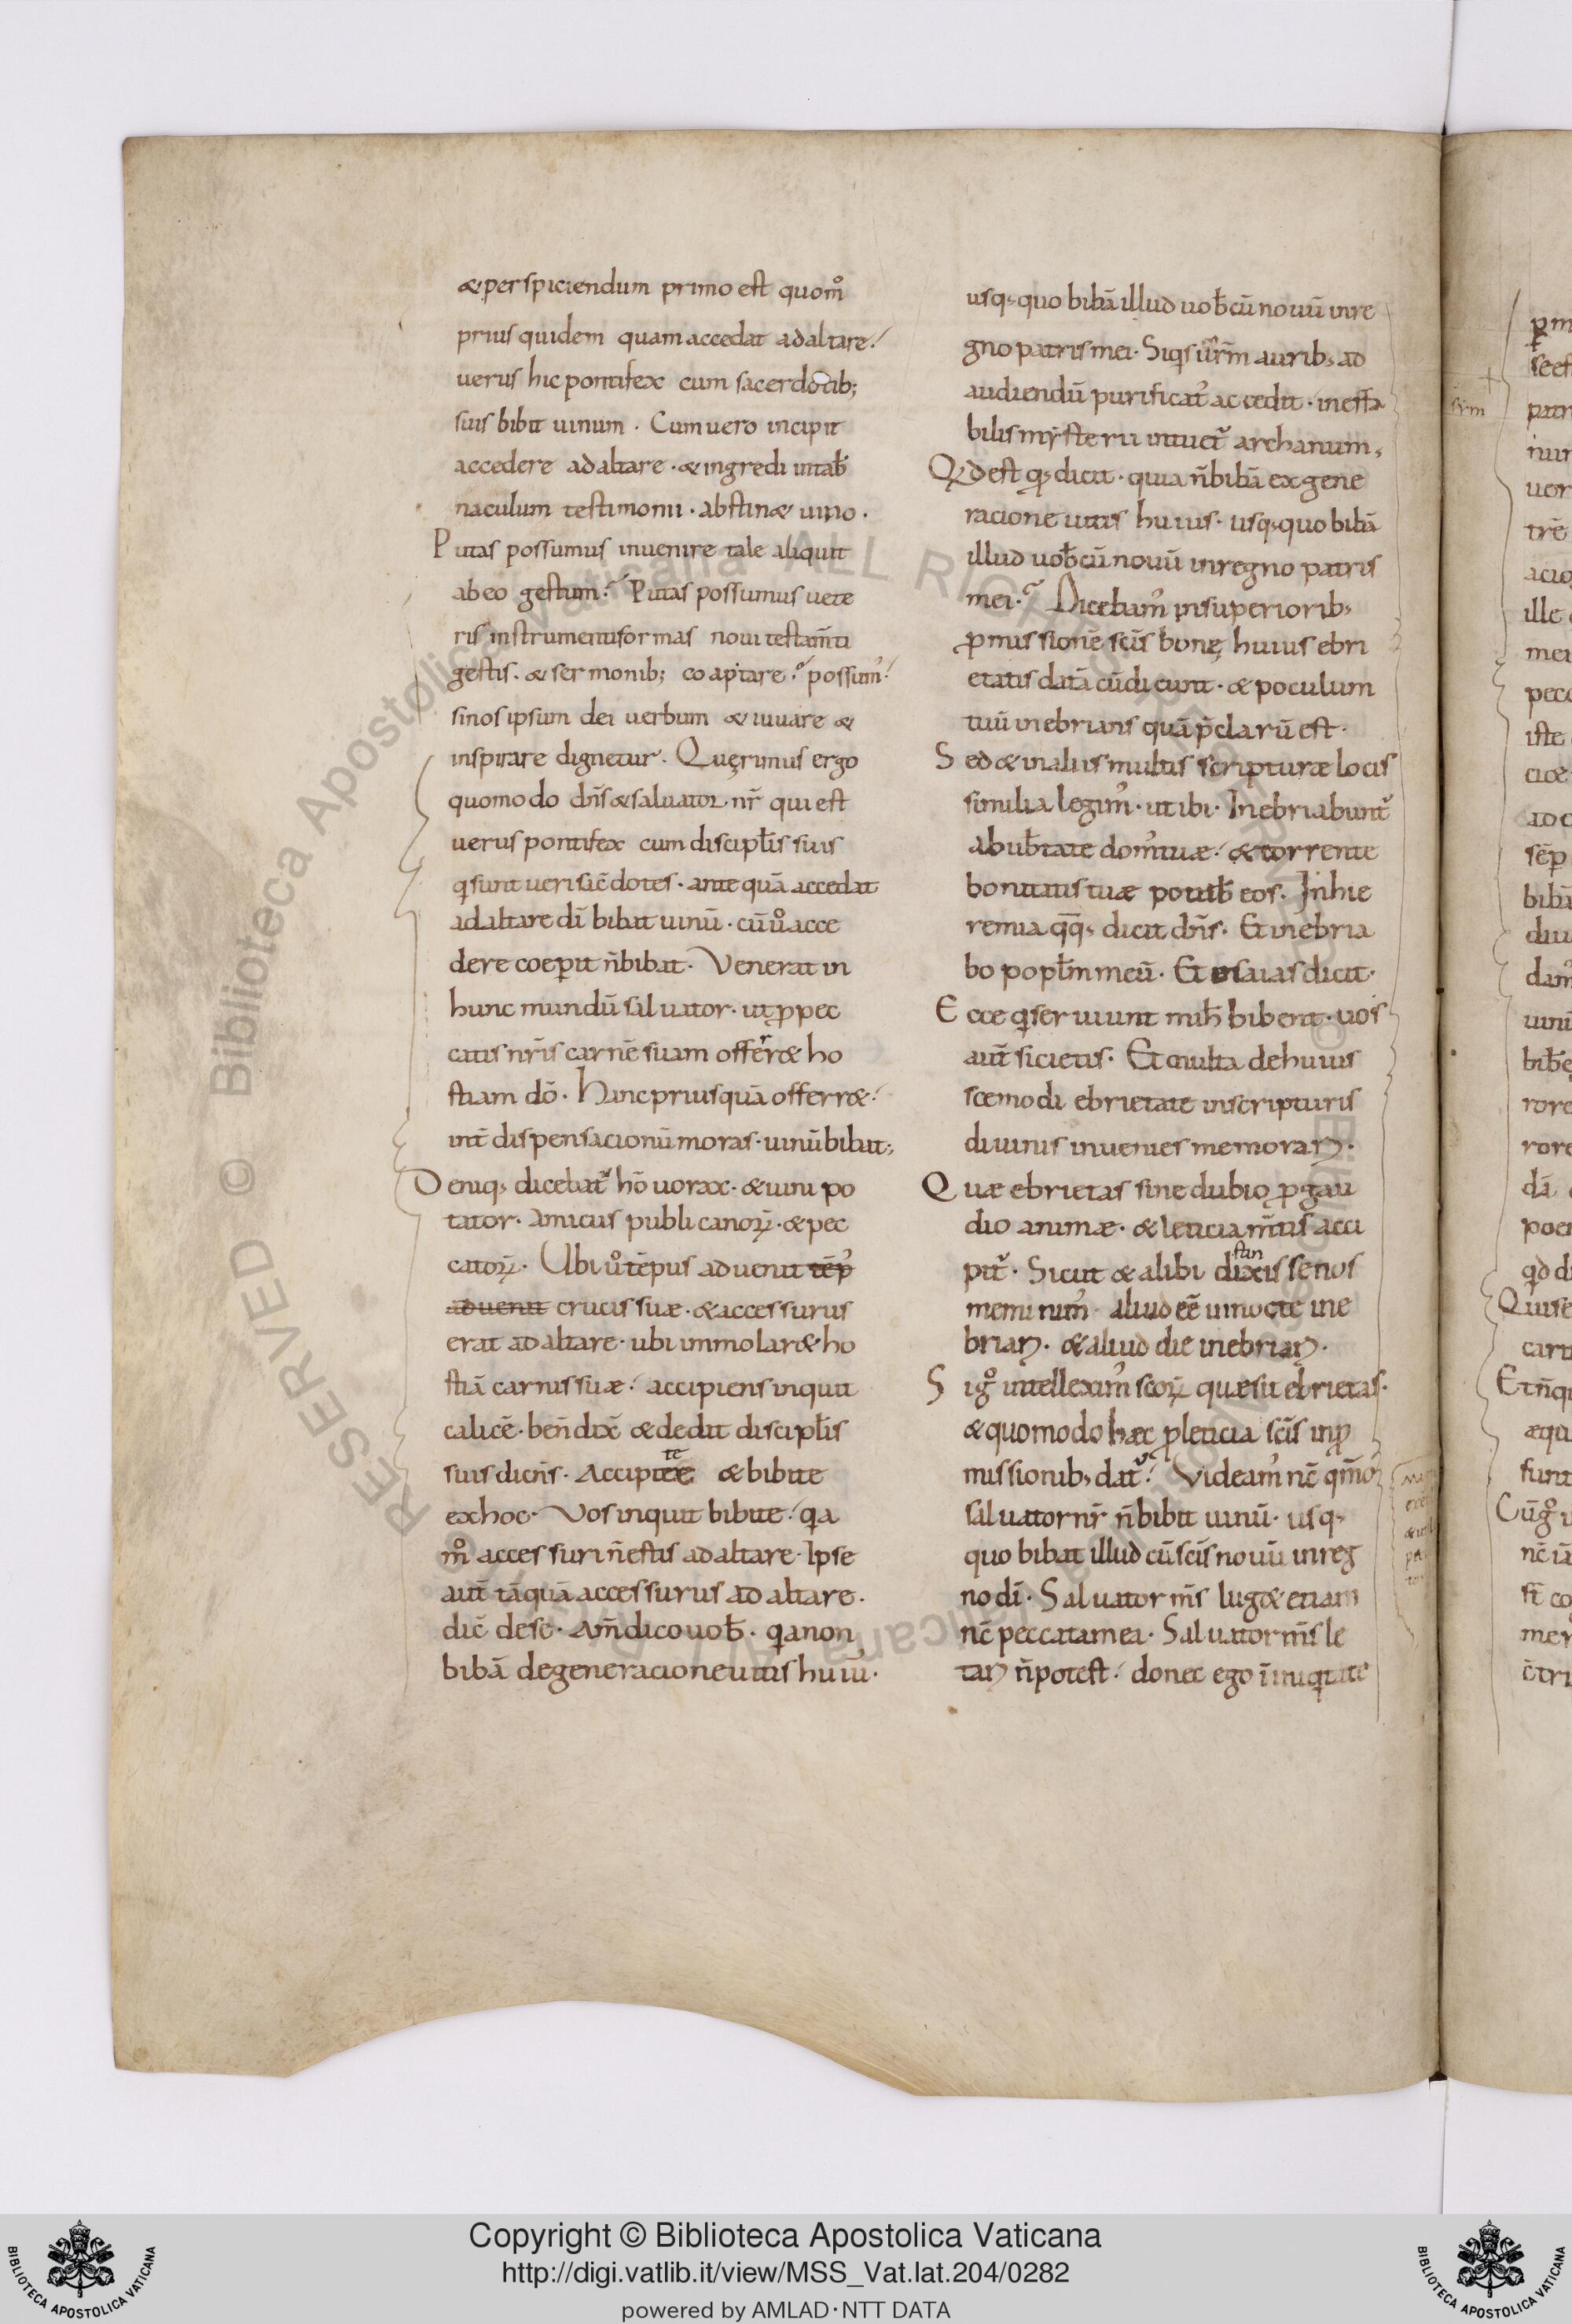 & perspiciendum primo est quom̊
prius quidem quam accedat ad altare·
uerus hic pontifex cum sacerdotib;
suis bibit uinum · Cum uero incipit
accedere ad altare · & ingredi in tab̄
naculum testimonii · abstin& uino ·
Putas possumus inuenire tale aliquit
ab eo gestum? Putas possumus uete
ris instrumenti formas noui testam̄ti
gestis · & sermonib; coaptare? possum'
si nos ipsum dei uerbum & iuuare &
inspirare dignetur · Quęrimus ergo
quomodo dn̄s & saluator nr̄ qui est
uerus pontifex cum discipl̄is suis
q sunt ueri sac̄dotes · ante quā accedat
ad altare dī bibit uinū · cū ů acce
dere coeperit n̄ bibat · Venerat in
hunc mundū saluator · ut p pec
catis nr̄is carnē suam offerr& ho
stiam dō · Hinc priusquā offerr&
int̄ dispensacionū moras · uinū bibit;
Deniq; dicebat' hō uorax · & uini po
tator · Amicus publicanoꝝ · & pec
catoꝝ · Ubi ů tēpus aduenit tēp'
aduenit crucis suæ · & accessurus
erat ad altare · ubi immolar& ho
stiā carnis suæ · accipiens inquit
calicē · ben̄dix̄ & dedit discipl̄is
suis dicn̄s · Accipite & bibite
ex hoc · Vos inquit bibite · qa
m̊ accessuri n̄ estis ad altare · Ipse
aut̄ tāquā accessurus ad altare ·
dic̄ de se · Am̄ dico uob̄ · qa non
bibā de generacione uitis huiu' ·
usq; quo bibā illud uob̄cū nouū in re
gno patris mei · Siqs ur̄m aurib; ad
audiendū purificat' accedit · ineffa
bilis mysterii intuet' archanum ·
Qd est q; dicit · quia n̄ bibā ex gene
racione uitis huius · usq; quo bibā
illud uob̄cū nouū in regno patris
mei · Dicebam' in superiorib;
pmissionē sc̄is bonę huius ebri
etatis datā cū dicunt · & poculum
tuū inebrians quā p̄clarū est ·
Sed & in aliis multis scripturæ locis
similia legim' · ut ibi · Inebriabunt'
ab ub̄tate dom' tuæ · & torrente
bonitatis tuæ potab̄ eos · In hie
remia qq; dicit dn̄s · Et inebria
bo popl̄m meū · Et esaias dicit ·
Ecce q seruiunt mih̄ bibent · uos
aut̄ sicietis · Et multa de huius
scemodi ebrietate in scripturis
diuinis inuenies memoraꝝ ·
Quæ ebrietas sine dubio p gau
dio animæ · & leticia m̄tis acci
pit' · Sicut & alibi distinxisse nos
meminim' aliud eē uino cte ine
briaꝝ · & aliud die inebriaꝝ ·
Si gͦ intellexim' scoꝝ quæ sit ebrietas ·
& quomodo hæc p leticia sc̄is in p
missionib; dat'? Videam' nc̄ qm̄o
saluator nr̄ n̄ bibit uinū · usq;
quo bibat illud cū sc̄is nouū in reg
no dī · Saluator m̄s lug& etiam
nc̄ peccata mea · Saluator m̄s le
taꝝ n̄ potest · donec ego ī niqtate
Copyright © Biblioteca Apostolica Vaticana
http://digi.vatlib.it/view/MSS_Vat.lat.204/0282
powered by AMLAD·NTT DATA
BIBLIOTECA APOSTOLICA VATICANA
BIBLIOTECA APOSTOLICA VATICANA